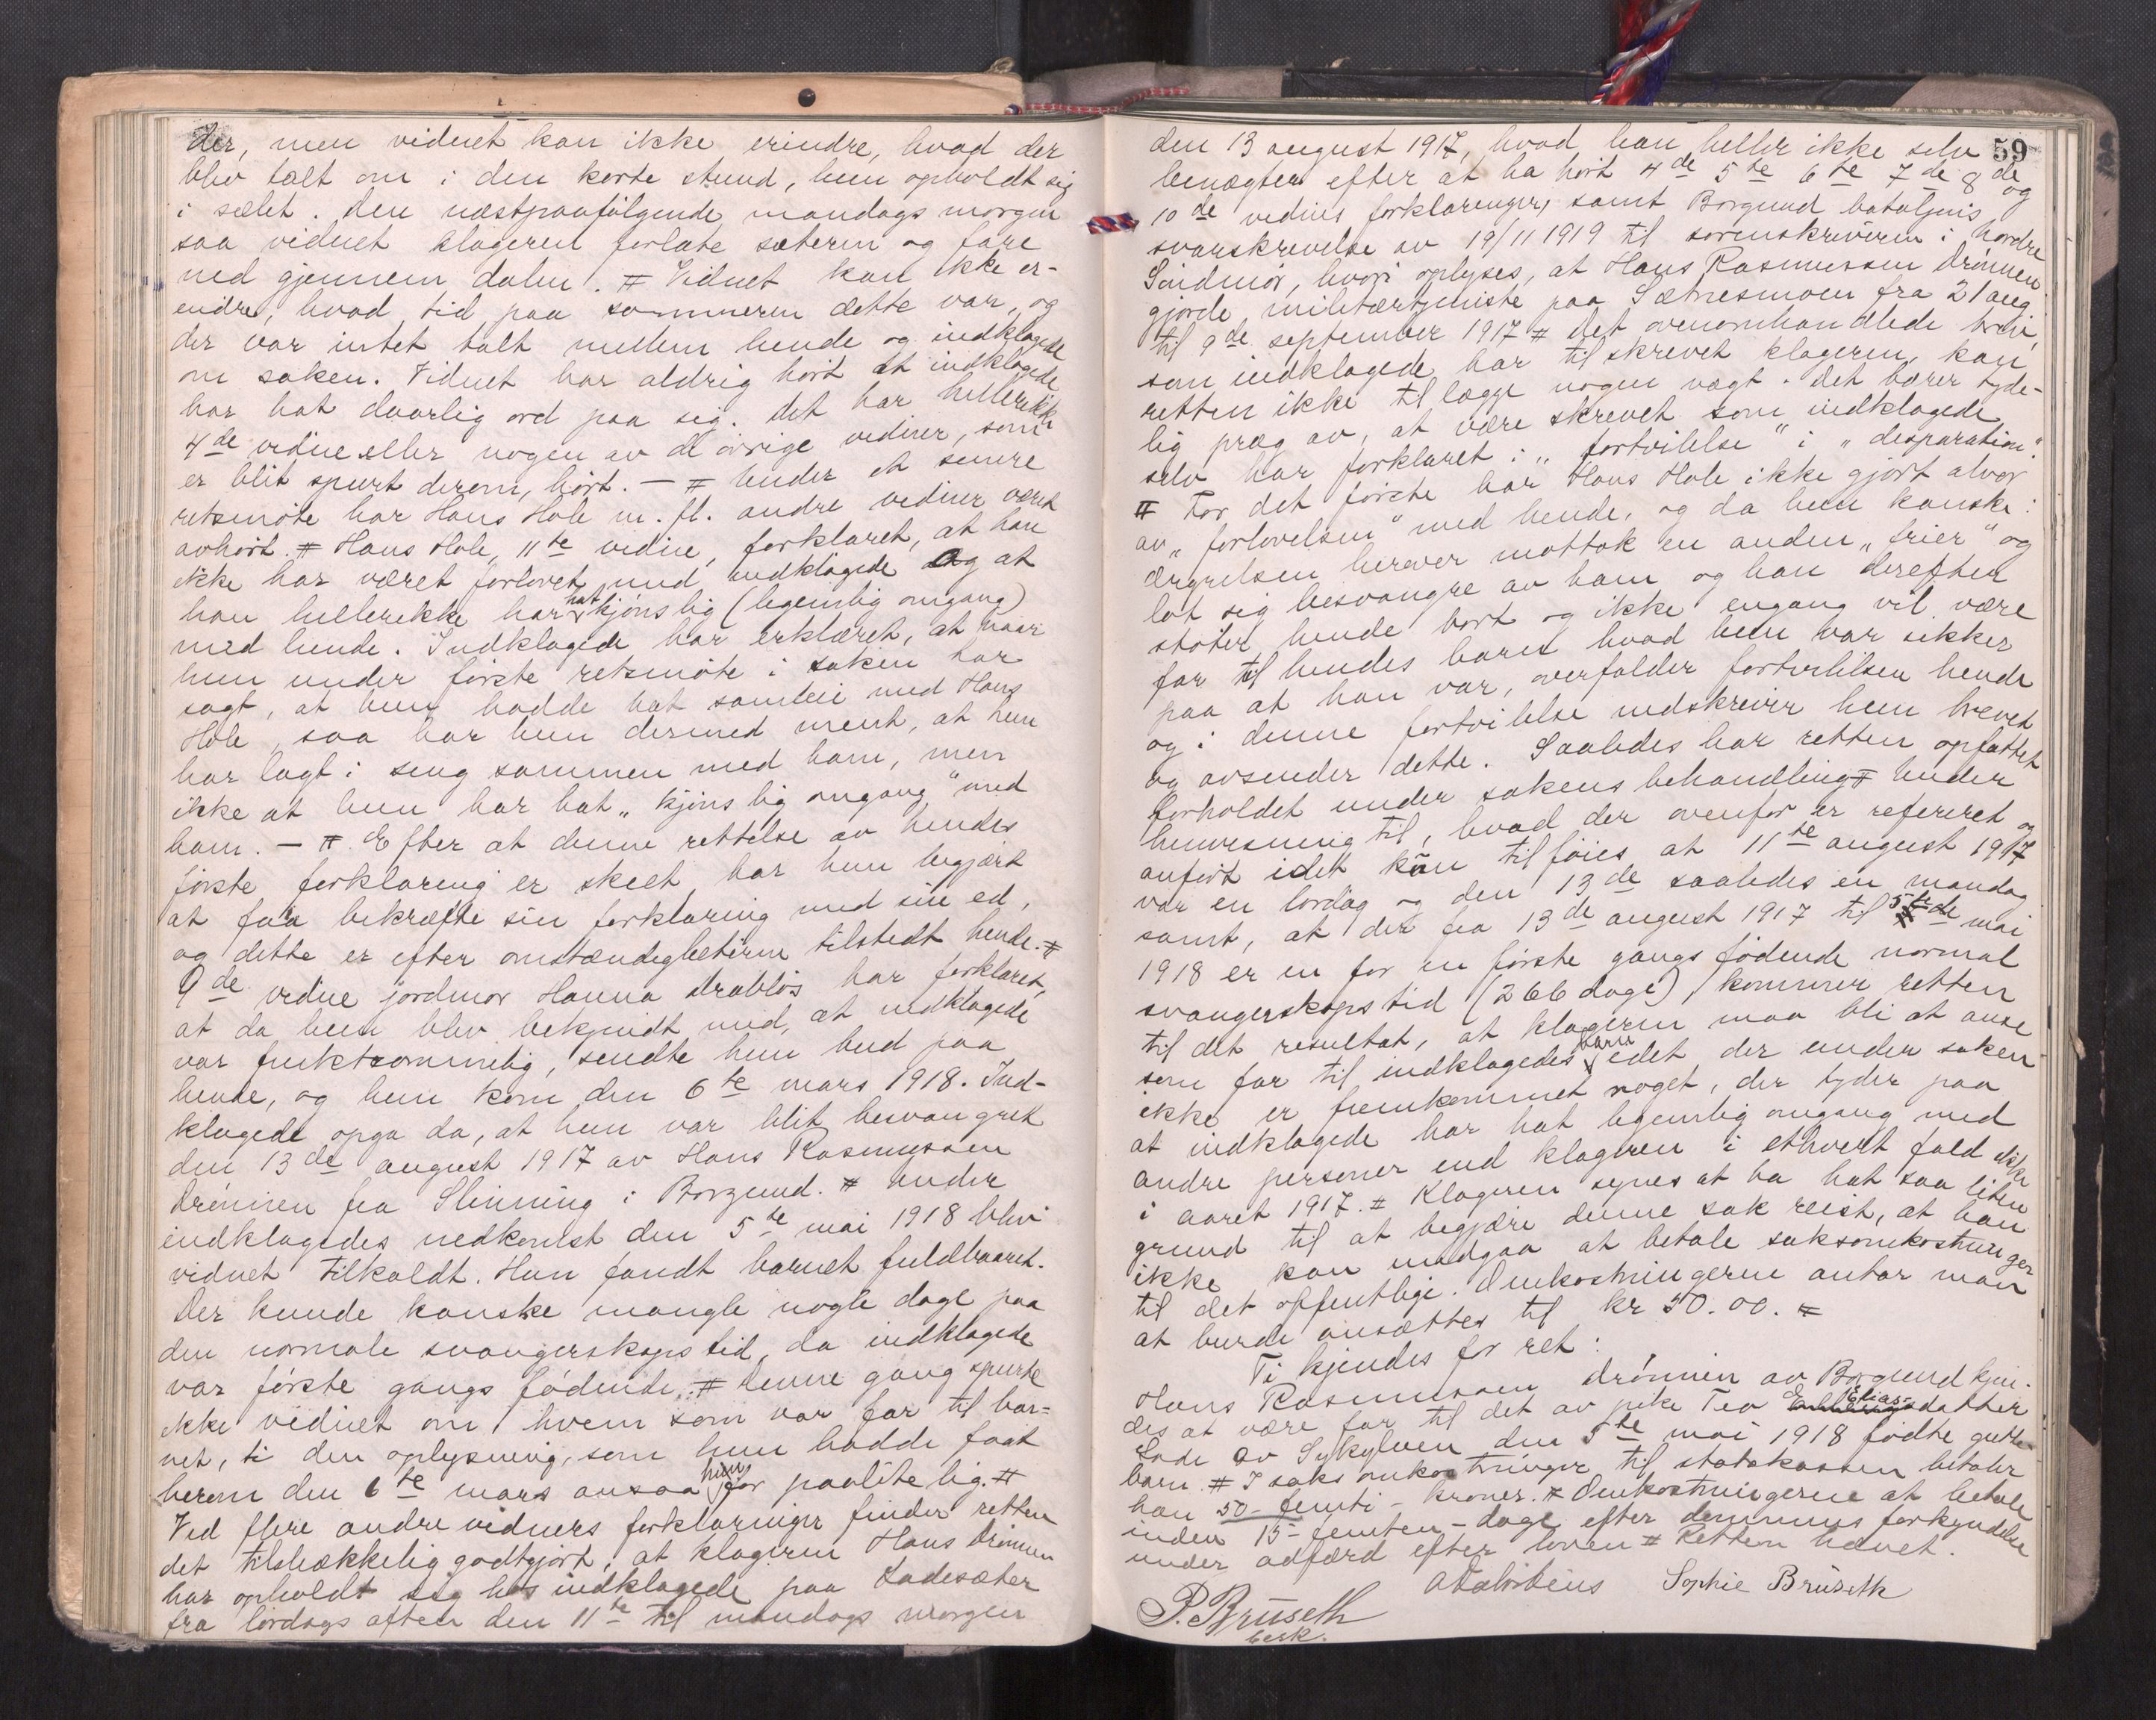 der, men vidnet kan ikke erindre, hvad der
blev talt om i den korte stund, hun opholdt sig
i sælet. Den næstpaafølgende mandags morgen
saa vidnet klageren forlate sæteren og fare
ned gjennem dalen. # Vidnet kan ikke er-
endre, hvad tid paa sommeren dette var, og
der var intet talt mellem hende og indklagede
om saken. Vidnet har aldrig hørt at indklagede
har hat daarlig ord paa sig. Det har hellerikke
4de vidne eller nogen av de øvrige vidner, som
er blit spurt derom, hørt. — # Under et senere
retsmøte har Hans Hole m. fl. andre vidner været
avhørt. # Hans Hole, 11te vidne, forklaret, at han
ikke har været forlovet med indklagede og at
han hellerikke har hat kjønslig (legemlig omgang)
med hende. Indklagede har erklæret, at naar
hun under første retsmøte i saken har
sagt, at hun hadde hat samleie med Hans
Hole, saa har hun dermed ment, at hun
har lagt i seng sammen med ham, men
ikke at hun har hat „kjønslig omgang" med
ham. — # Efter at denne rettelse av hendes
første forklaring er skeet, har hun begjært
at faa bekræfte sin forklaring med sin ed,
og dette er efter omstændegheterne tilstedt hende. #
9de vidne jordmor Hanna Drabløs har forklaret,
at da hun blev bekjendt med, at indklagede
var fruktsommelig, sendte hun bud paa
hende, og hun kom den 6te mars 1918. Ind-
klagede opga da, at hun var blit besvangret
den 13de august 1917 av Hans Rasmussen
Drønnen fra Slinning i Borgund. # Under
indklagedes nedkomst den 5te mai 1918 blev
vidnet tilkaldt. Hun fandt barnet fuldbaaret.
Der kunde kanske mangle nogle dage paa
den normale svangerskaps tid, da indklagede
var første gangs fødende. # Denne gang spurte
ikke vidnet om hvem som var far til bar-
net, ti den oplysning, som hun hadde faat
herom den 6te mars ansaa hun for paalitelig. #
Ved flere andre vidners forklaringer finder retten
det tilstrækkelig godtgjort, at klageren Hans Drønnen
har opholdt sig hos indklagede paa Ladesæter
fra lørdags aften den 11te til mandags morgen
59
den 13 august 1917, hvad han heller ikke selv
benægter efter at ha hørt 4de 5te 6te 7de 8de og
10de vidnes forklaringer, samt Borgund bataljons
svarskrivelse av 19/11 1919 til sorenskriveren i nordre
Søndmør, hvori oplyses, at Hans Rasmussen Drønnen
gjorde militærtjeniste paa Sætnesmoen fra 21 aug
til 9de september 1917 # Det ovenomhandlede brev,
som indklagede har tilskrevet klageren, kan
retten ikke tillægge nogen vægt. Det bærer tyde-
lig præg av, at være skrevet som indklagede
selv har forklaret i „fortvilelse" i „desparation".
# For det første har Hans Hole ikke gjort alvor
av „forlovelsen" med hende, og da hun kanske i
ærgrelsen herover mottok en anden „frier" og
lot sig besvangre av ham og han derefter
støter hende bort og ikke engang vil være
far til hendes barn hvad hun var sikker
paa at han var, overfalder fortvilelsen hende
og i denne fortvilelse nedskriver hun brevet
og avsender dette. Saaledes har retten opfattet
forholdet under sakens behandling # Under
henvisning til, hvad der ovenfor er referert og
anført idet kan tilføies at 11te august 1917
var en lørdag og den 13de saaledes en mandag
samt, at der fra 13de august 1917 til 5te mai
1918 er en for en første gangs fødende normal
svangerskaps tid (266 dage), kommer retten
til det resultat, at klageren maa bli at anse
som far til indklagedes barn idet der under saken
ikke er fremkommet noget, der tyder paa
at indklagede har hat legemlig omgang med
andre personer end klageren i ethvert fald ikke
i aaret 1917. # Klageren synes at ha hat saa liten
grund til at begjære denne sak reist, at han
ikke kan undgaa at betale saksomkostninger
til det offentlige. Omkostningerne antar man
at burde ansættes til kr 50.00. #
Ti kjendes for ret:
Hans Rasmussen Drønnen av Borgund kjen-
des at være far til det av pike Tea Eliasdatter
Lade av Sykylven den 5te mai 1918 fødte gutte-
barn. # I saksomkostninger til statskassen betaler
han 50 - femti - kroner. # Omkostningerne at betale
inden 15 - femten - dage efter dommens forkyndelse
under adfærd efter loven # Retten hævet.
Sophie Brüseth
P. Brüseth
besk.